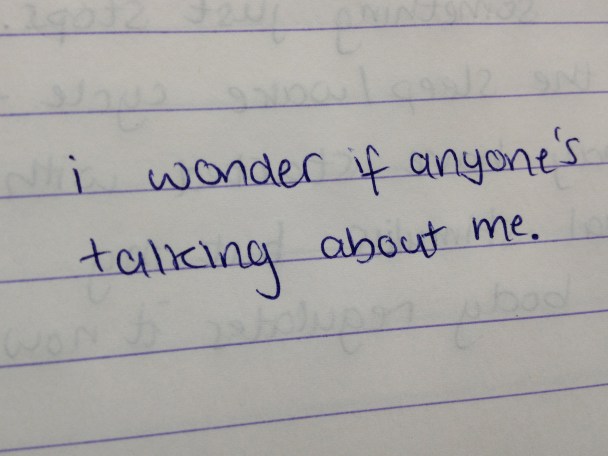 i wonder if anyone's
talking about me.